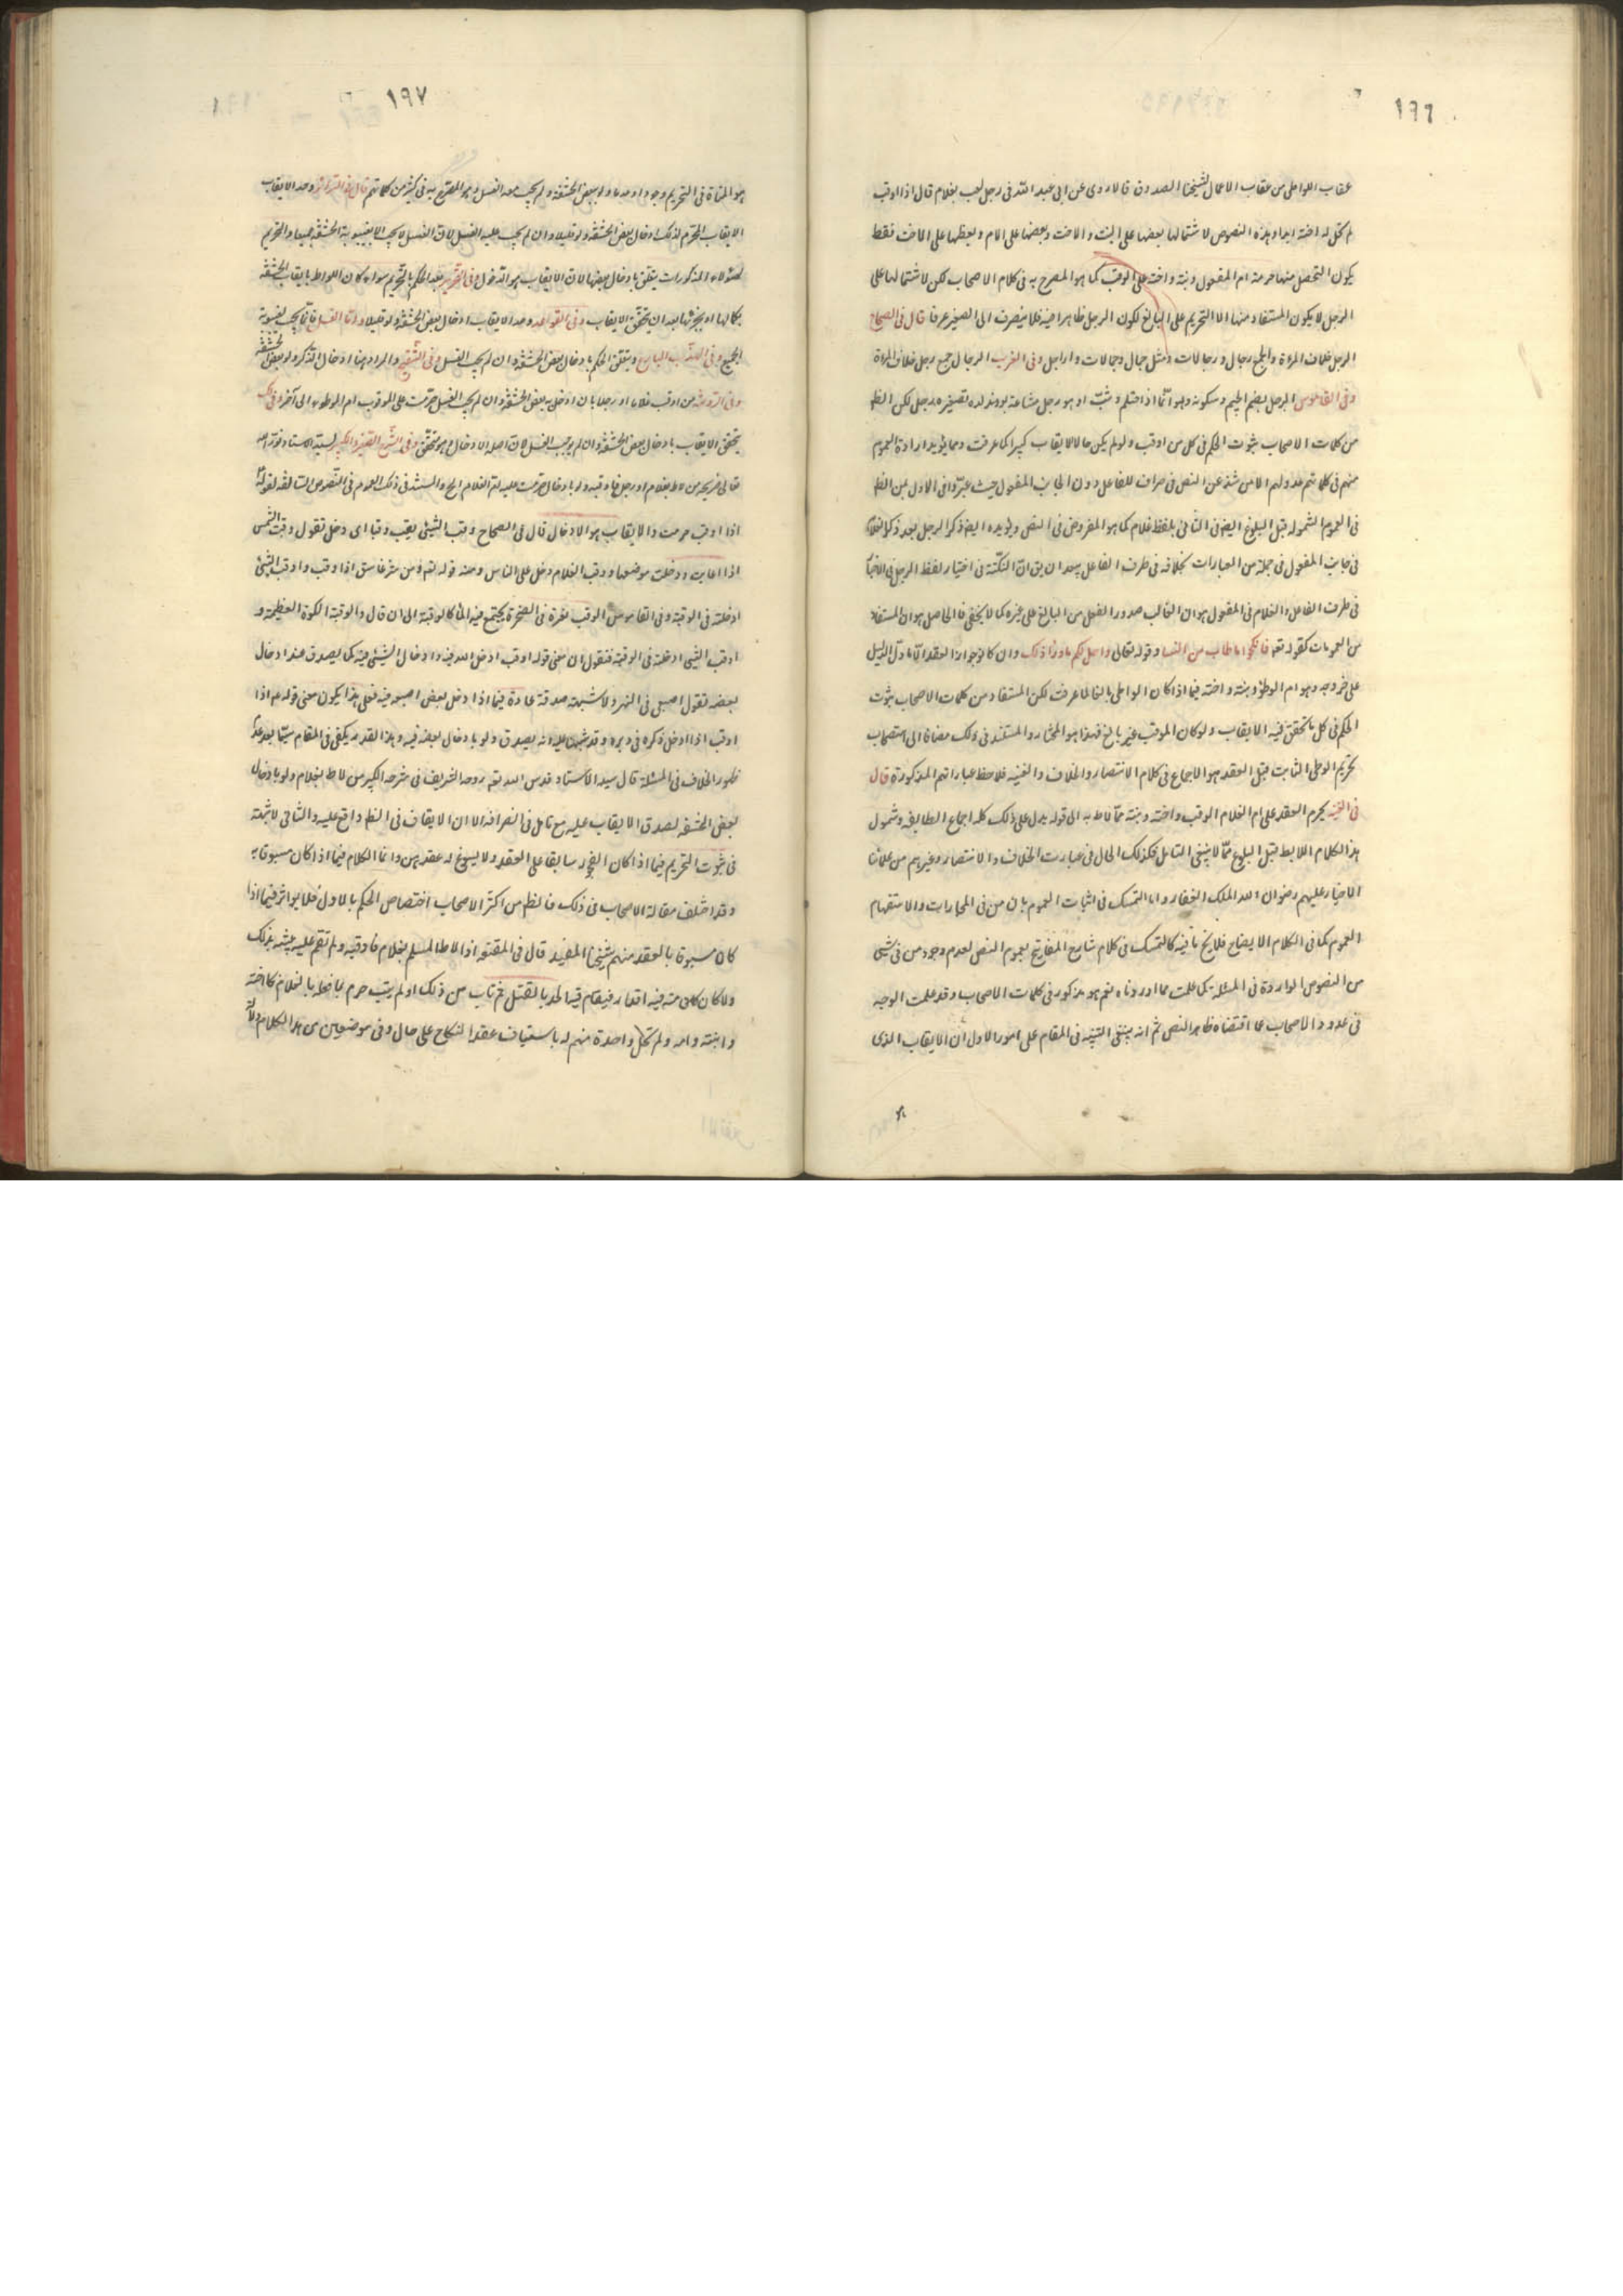 ١٩٦
عقاب اللواطى من عقاب الاعمال لشيخنا الصدوق قال روى عن ابى عبد الله فى رجل لعب بغلام قال اذا اوقب
لم تحل له اخته ابدا وهذه النصوص لاشتمالها بعضها على البنت والاخت وبعضها على الام وبعضها على الاخت فقط
يكون المتحصل منها حرمة ام المفعول وبنته واخته على الموقب كما هو المصرح به فى كلام الاصحاب لكن لاشتمالها على
الرجل لا يكون المستفاد منها الا التحريم على البالغ لكون الرجل ظاهرا فيه فلا ينصرف الى الصغير عرفا قال فى الصحاح
الرجل خلاف المرءة والجمع رجال ورجالات مثل جمال وجمالات واراجل وفى المغرب الرجال جمع رجل خلاف المرءة
وفى القاموس الرجل بضم الجيم وسكونه وهو انما اذا احتلم وشبّ او هو رجل ساعة يولد تصغيره رجيل لكن الظ
من كلمات الاصحاب ثبوت الحكم فى كل من اوقب ولو لم يكن حال الايقاب كبيرا كما عرفت ومما يؤيد ارادة العموم
منهم فى كلماتهم عدولهم الا من شذ عن النص فى طرف الفاعل دون الجانب المفعول حيث عبّروا فى الاول بمن الظ
فى العموم الشموله قبل البلوغ ايضا وفى الثانى بلفظ غلام كما هو المفروض فى النص ويؤيده ايضا ذكر الرجل بعد ذكر الغلام
فى جانب المفعول فى جملة من العبارات بخلافه فى طرف الفاعل بعد ان يق انّ النكتة فى اختيار لفظ الرجل فى الاخبار
فى طرف الفاعل والغلام فى المفعول هو ان الغالب صدور الفعل من البالغ على غيره كما لا يخفى فالحاصل هو ان المستفاد
من العمومات كقوله تعه فانكحوا ما طاب من النسا وقوله تعالى واحل لكم ما وراء ذلك وان كان جواز العقد الا ما دل الدليل
على خروجه وهو ام الموطؤ وبنته واخته فيما اذا كان الواطى بالغا لما عرفت لكن المستفاد من كلمات الاصحاب ثبوت
الحكم فى كل ما تحقق فيه الايقاب ولو كان الموقب غير بالغ فهذا هو المختار والمستند فى ذلك مضافا الى استصحاب
تحريم الوطى الثابت قبل العقد هو الاجماع فى كلام الانتصار والخلاف والغنيه فلاحظ عباراتهم المذكورة قال
فى الغنيه يحرم العقد على ام الغلام الموقب واخته وبنته ممّا لاط به الى قوله يدل على ذلك كله اجماع الطايفه وشمول
هذا الكلام اللايط قبل البلوغ ممّا لا ينبغى التامل فكذلك الحال فى عبارت الخلاف والانتصار وغيرهم من علمائنا
الاخيار عليهم رضوان الله الملك الغفار واما التمسك فى اثبات العموم بان من فى المجازات والاستفهام
العموم كما فى الكلام الايضاح فلا يخ ما فيه كالتمسك فى كلام شارح المفاتيح بعموم النص لعدم وجود من فى شئ
من النصوص الواردة فى المسئلة كما علمت مما اوردناه نعم هو مذكور فى كلمات الاصحاب وقد علمت الوجه
فى عدول الاصحاب عما اقتضاه ظاهر النص ثم انه ينبغى التنبيه فى المقام على امور الاول ان الايقاب الذى
١٩٧
هو المناط فى التحريم وجودا وعدما ولو ببعض الحشفة ولم يجب معه الغسل وهو المصرح به فى كثير من كلماتهم قال فى السرائر وحد الايقاب
الايقاب المحرم لذلك ادخال بعض الحشفة ولو قليلا وان لم يجب عليه الغسل لان الغسل لا يجب الا بغيبوبة الحشفة جميعا والتحريم
لهؤلاء المذكورات يتعلق بادخال بعضها لان الايقاب هو الدخول وفى التحرير بعد الحكم بالتحريم سواء كان اللواط بايقاب الحشفة
بكمالها او ببعضها بعد ان يتحقق الايقاب وفى القواعد وحد الايقاب ادخال بعض الحشفة ولو قليلا واما الغسل فانما يجب بغيبوبة
الجميع وفى المهذب البارع ويتعلق الحكم بادخال بعض الحشفة وان لم يجب الغسل وفى التنقيح والمراد هنا ادخال الذكر ولو بعض الحشفة
وفى الروضة من اوقب غلاما او رجلا بان ادخل به بعض الحشفة وان لم يجب الغسل حرمت على الموقب ام الموطوء الى آخره فى ذلك
يتحقق الايقاب بادخال بعض الحشفة وان لم يوجب الغسل لان اصله الادخال وهو متحقق وفى الشرح الصغير والكبير لسيد الاستاد نور الله
تعالى ضريحه من لاط بغلام او رجل فاوقبه ولو بادخال حرمت عليه ام الغلام الخ والمستند فى ذلك العموم فى النصوص السالفه لقوله
اذا اوقب حرمت والايقاب هو الادخال قال فى الصحاح وقب الشيئ يقب وقبا اى دخل تقول وقبت الشمس
اذا غابت ودخلت موضعها ووقب الظلام دخل على الناس ومنه قوله تعه ومن شر غاسق اذا وقب واوقبت الشيئ
ادخلته فى الوقبة وفى القاموس الوقب نقرة فى الصخرة يجتمع فيه الماء كالوقبة الى ان قال والوقبة الكوة العظيمة و
اوقب الشئ ادخلته فى الوقبة فنقول ان معنى قوله اوقب ادخل الذكر فيه وادخال الشيئ فيه كما يصدق عند ادخال
بعضه تقول اصبعى فى النهر ولا شبهة صدقة عادة فيما اذا دخل بعض اصبعه فيه فعلى هذا يكون معنى قوله ع اذا
اوقب اذا ادخل ذكره فى دبره وقد شبهنا عليه انه يصدق ولو بادخال بعضه فيه وهذا القدر يكفى فى المقام سيّما بعد عدم
ظهور الخلاف فى المسئلة قال سيد الاستاد قدس الله تعه روحه الشريف فى شرحه الكبير من لاط بغلام ولو بادخال
بعض الحشفه لصدق الايقاب عليه مع تامل فى انصرافه الا ان الايقاف فى النظ واقع عليه والثانى لا شبهة
فى ثبوت التحريم فيما اذا كان الفجور سابقا على العقد ولا يسوغ له عقدهن وانما الكلام فيما اذا كان مسبوقا به
وقد اختلف مقالة الاصحاب فى ذلك فالظ من اكثر الاصحاب اختصاص الحكم بالاول فلا يؤثر فيما اذا
كان مسبوقا بالعقد منهم شيخنا المفيد قال فى المقنعه اذا لاط المسلم بغلام فاوقبه ولم تقم عليه بينة بذلك
ولا كان منه فيه اقرار فيقام فيه الحد بالقتل ثم تاب من ذلك او لم يتب حرم بما فعله بالغلام نكاح اخته
وابنته وامه ولم تحل واحدة منهم له باستيناف عقد النكاح على حال وفى موضعين من هذا الكلام دلالة